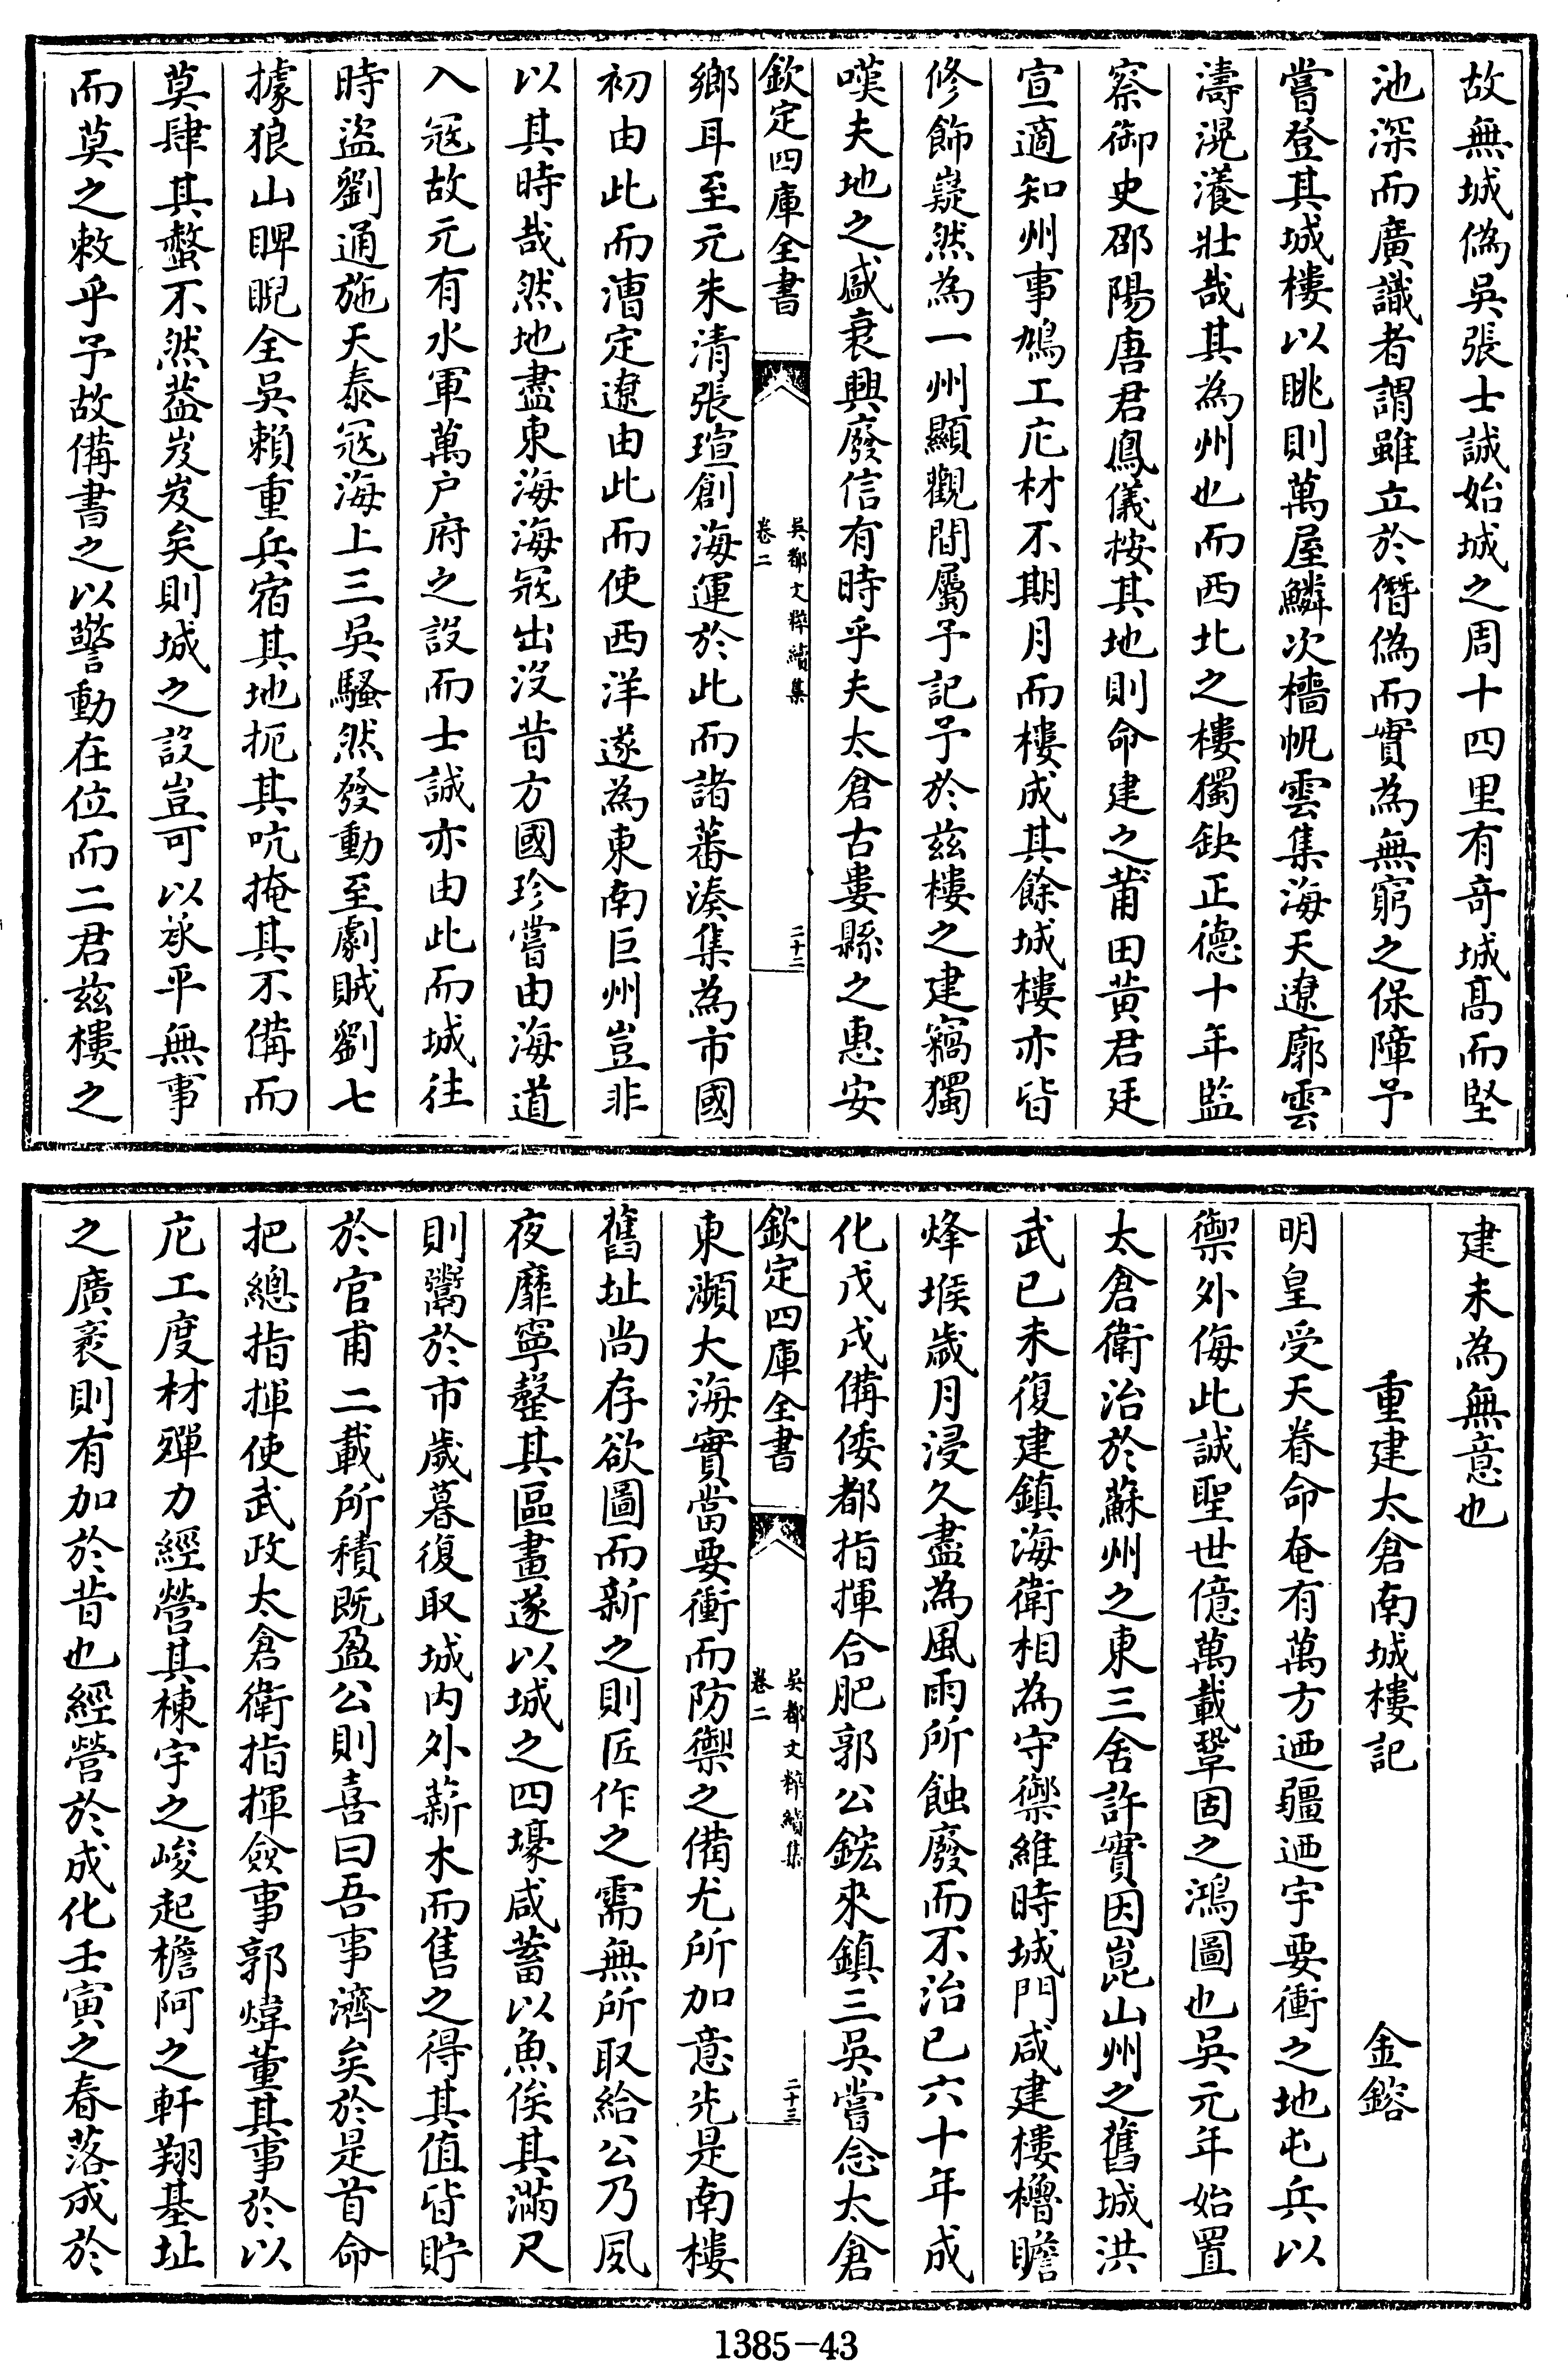 故無城偽吳張士誠始城之周十四里有奇城髙而堅
池深而廣識者謂雖立於僭偽而實為無窮之保障予
嘗登其城樓以眺則萬屋鱗次檣帆雲集海天遼廓雲
濤滉瀁壯哉其為州也而西北之樓獨缺正德十年監
察御史邵陽唐君鳳儀按其地則命建之莆田黄君廷
宣適知州事鳩工庀材不期月而樓成其餘城樓亦皆
修飾嶷然為一州顯觀間屬予記予於兹樓之建竊獨
嘆夫地之盛衰興廢信有時乎夫太倉古婁縣之惠安
欽定四庫全書
吳都文粹續集
卷二
二十二
鄉耳至元朱清張瑄創海運於此而諸蕃湊集為市國
初由此而漕定遼由此而使西洋遂為東南巨州豈非
以其時哉然地盡東海海冦出沒昔方國珍嘗由海道
入冦故元有水軍萬户府之設而士誠亦由此而城往
時盜劉通施天泰冦海上三吳騷然發動至劇賊劉七
據狼山睥睨全吳賴重兵宿其地扼其吭掩其不備而
莫肆其螫不然葢岌岌矣則城之設豈可以承平無事
而莫之敕乎予故備書之以警動在位而二君兹樓之
建未為無意也
重建太倉南城樓記 金鎔
明皇受天眷命奄有萬方迺疆迺宇要衝之地屯兵以
禦外侮此誠聖世億萬載鞏固之鴻圖也吳元年始置
太倉衛治於蘇州之東三舍許實因崑山州之舊城洪
武已未復建鎮海衛相為守禦維時城門咸建樓櫓瞻
烽堠歲月浸久盡為風雨所蝕廢而不治已六十年成
化戊戌備倭都指揮合肥郭公鋐來鎮三吳嘗念太倉
欽定四庫全書
吳都文粹續集
卷二
二十三
東瀕大海實當要衝而防禦之備尤所加意先是南樓
舊址尚存欲圖而新之則匠作之需無所取給公乃夙
夜靡寧罄其區畫遂以城之四壕咸蓄以魚俟其滿尺
則鬻於市歲暮復取城内外薪木而售之得其值皆貯
於官甫二載所積既盈公則喜曰吾事濟矣於是首命
把總指揮使武政太倉衛指揮僉事郭煒董其事於以
庀工度材殫力經營其棟宇之峻起檐阿之軒翔基址
之廣袤則有加於昔也經營於成化壬寅之春落成於
1385-43